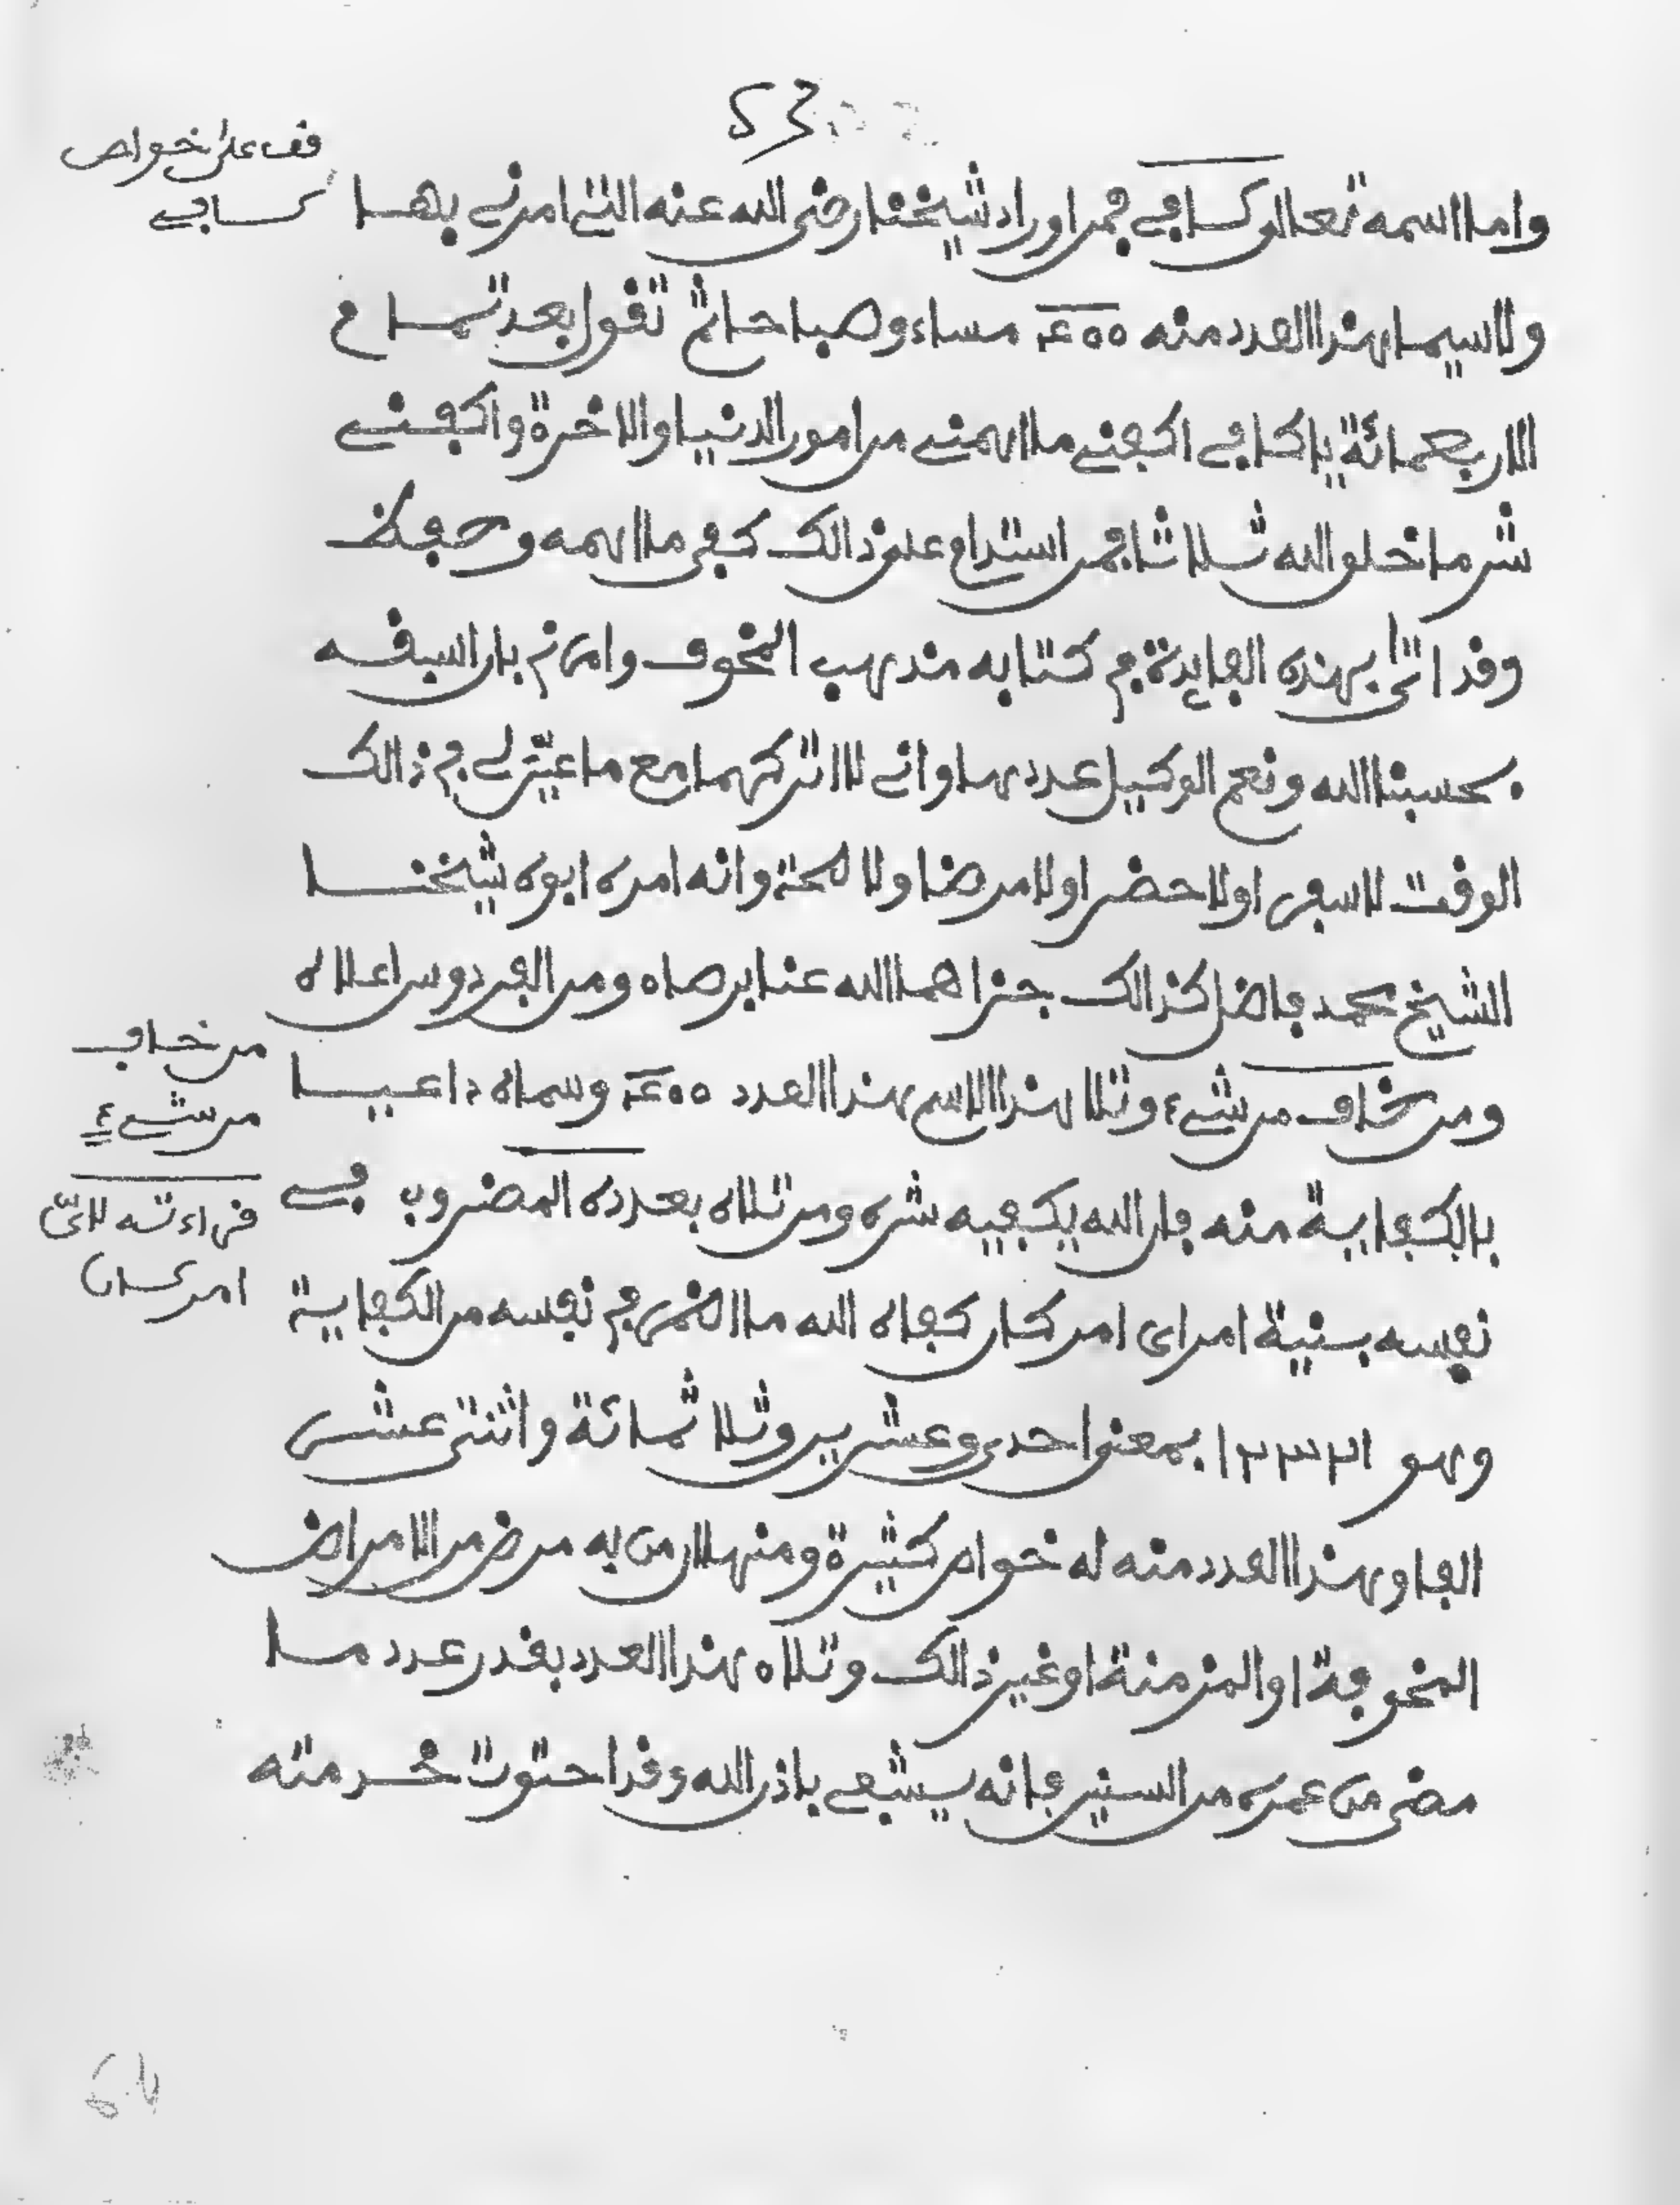 قف على خواص
كافي
واما اسمه تعالى كافي فمن اوراد شيخنا رضى الله عنه التي امرني بها
ولاسيما بهذا العدد منه ٤٠٠ مساء وصباحا ثم تقول بعد تمام
الاربعمائة يا كافي اكفني ما اهمني من امور الدنيا والاخرة واكفني
شر ما خلق الله ثلاثا فمن استدام على ذالك كفى ما اهمه وحفظ
وقد اتى بهذه الفايدة في كتابه مذهب المخوف وامرني بان اسبقه
بحسبنا الله ونعم الوكيل عددها واني لا اتركهما مع ما عين لي في ذالك
الوقت لا سفرا ولا حضرا ولا مرضا ولا صحة وانه امره ابوه شيخنا
الشيخ محمد فاضل كذالك جزاهما الله عنا برضاه ومن الفردوس اعلاه
ومن خاف من شيء وتلا هذا الاسم بهذا العدد ٤٠٠ وسماه داعيا
بالكفاية منه فان الله يكفيه شره ومن تلاه بعدده المضروب في
نفسه بنية امر اي امر كان كفاه الله ما اضمر في نفسه من الكفاية
وهو ١٢٣٢١ بمعنى احدى وعشرين وثلاثمائة واثنتى عشر
الفا وبهذا العدد منه له خواص كثيرة ومنها ان من به مرض من الامراض
المخوفة او المزمنة او غير ذالك وتلاه بهذا العدد بقدر عدد ما
مضى من عمره من السنين فانه يشفى باذن الله وقد احتوت خدمته
من خاف
من شيء
قراءته لاي
امر كان